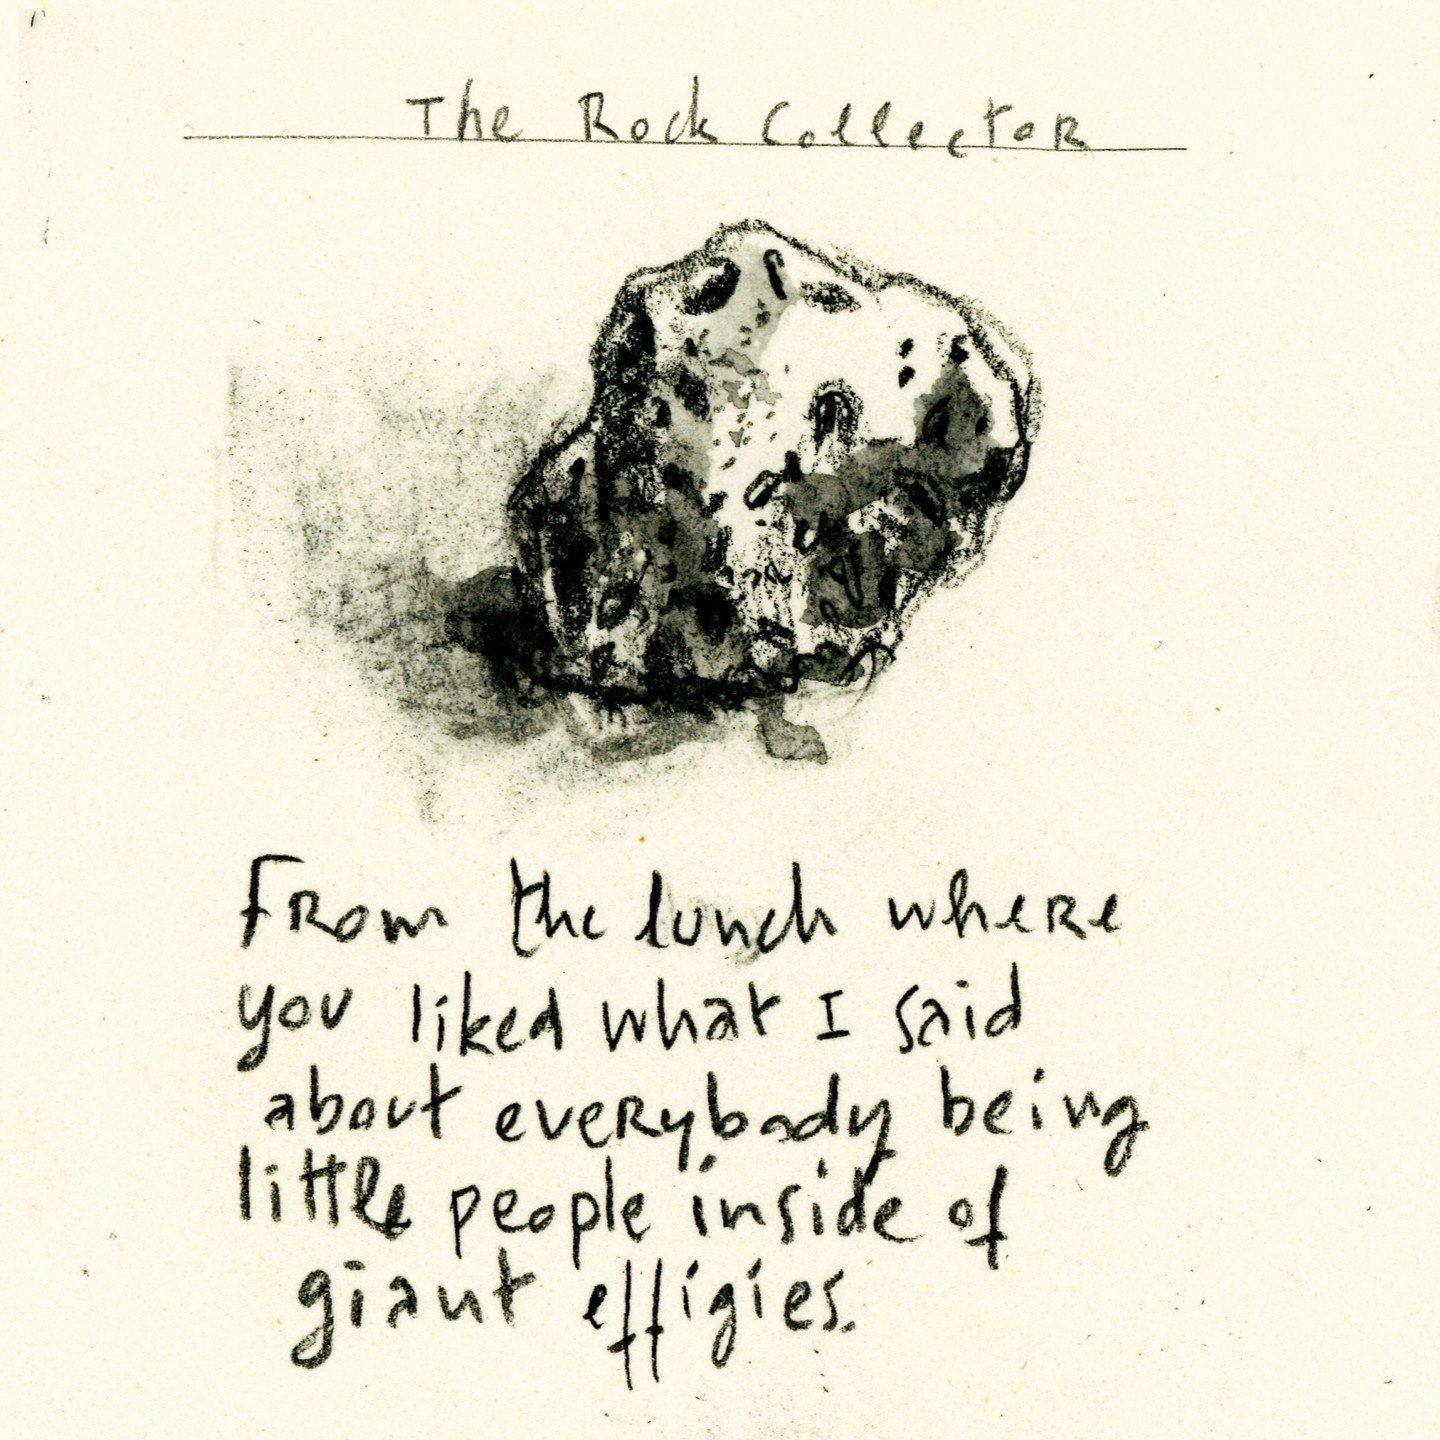 The Rock Collector
From the lunch where
you liked what I said
about everybody being
little people inside of
giant effigies.